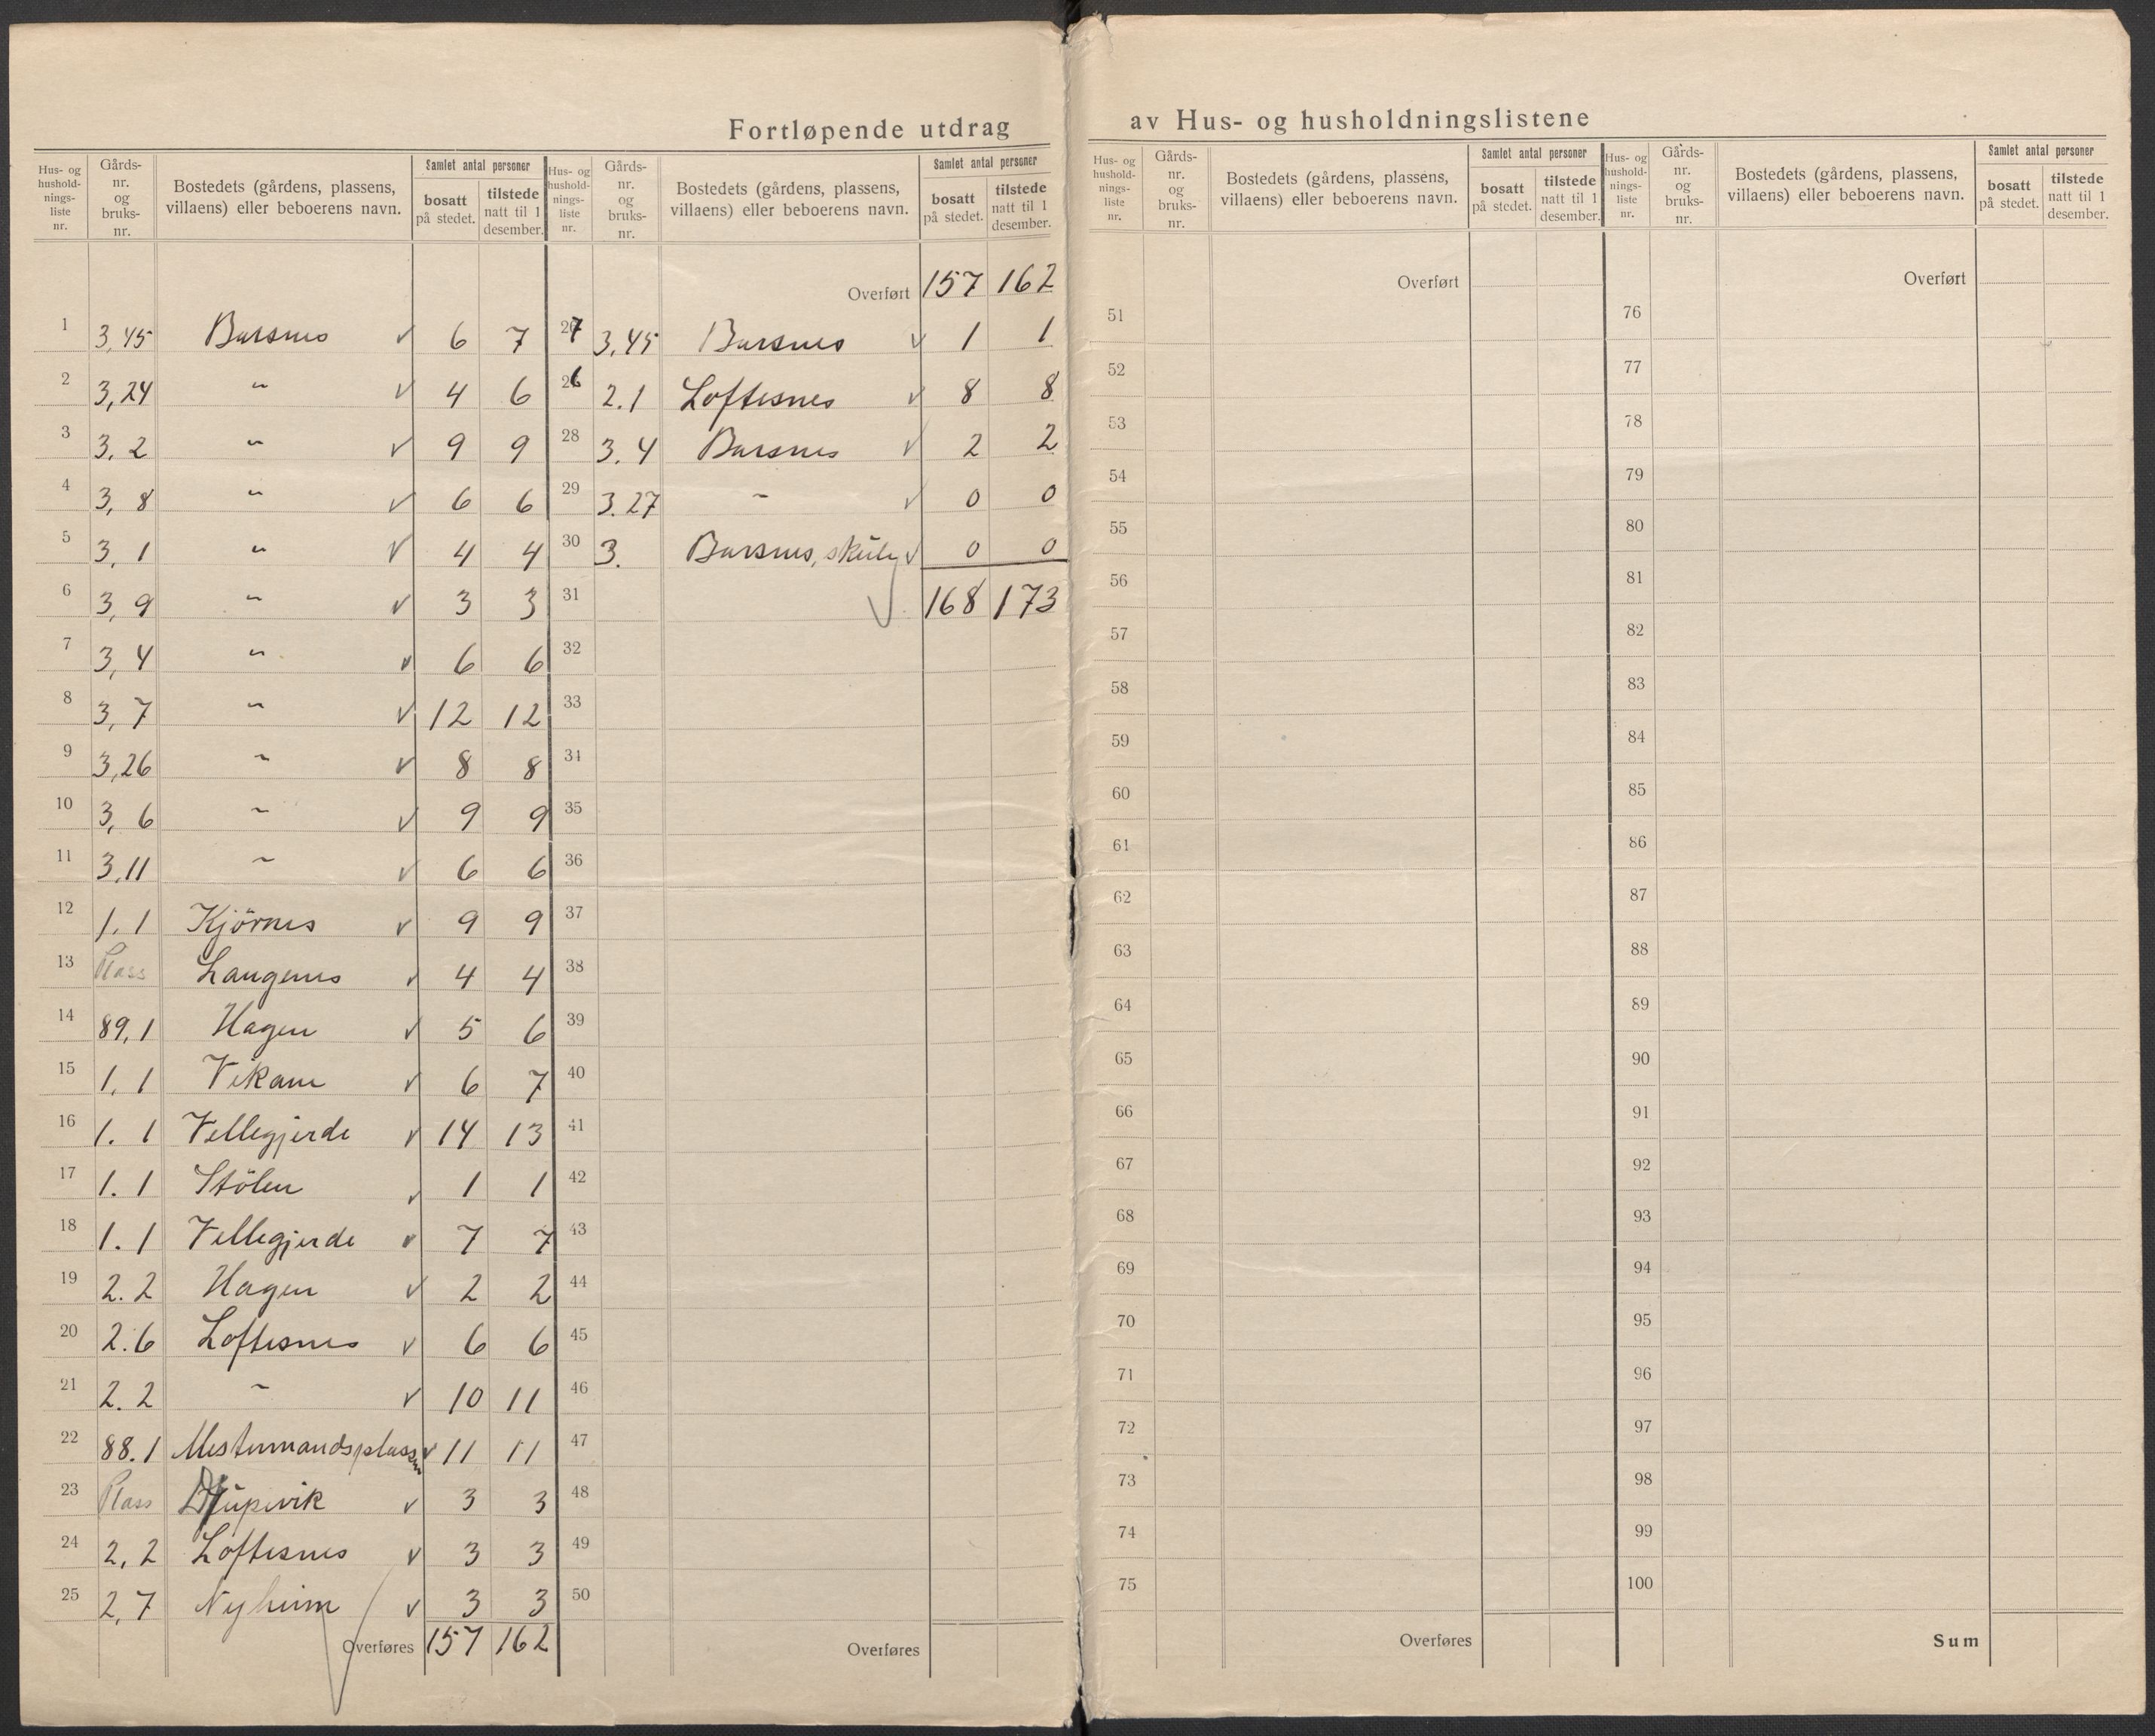 Fortløpende utdrag av Hus- og husholdningslistene
Hus- og hushold-nings-liste nr. | Gårds-nr. og bruks-nr. | Bostedets (gårdens, plassens, villaens) eller beboerens navn. | Samlet antal personer | bosatt på stedet. | tilstede natt til 1 desember.
Hus- og hushold-nings-liste nr. | Gårds-nr. og bruks-nr. | Bostedets (gårdens, plassens, villaens) eller beboerens navn. | Samlet antal personer | bosatt på stedet. | tilstede natt til 1 desember.
Hus- og hushold-nings-liste nr. | Gårds-nr. og bruks-nr. | Bostedets (gårdens, plassens, villaens) eller beboerens navn. | Samlet antal personer | bosatt på stedet. | tilstede natt til 1 desember.
Hus- og hushold-nings-liste nr. | Gårds-nr. og bruks-nr. | Bostedets (gårdens, plassens, villaens) eller beboerens navn. | Samlet antal personer | bosatt på stedet. | tilstede natt til 1 desember.
1 3,45 Barsnes 6 7
2 3,24 " 4 6
3 3,2 " 9 9
4 3,8 " 6 6
5 3,1 " 4 4
6 3,9 " 3 3
7 3,4 " 6 6
8 3,7 " 12 12
9 3,26 " 8 8
10 3,6 " 9 9
11 3,11 " 6 6
12 1.1 Kjörnes 9 9
13 Plass Langenes 4 4
14 89,1 Hagen 5 6
15 1,1 Vikane 6 7
16 1.1 Vellegjerde 14 13
17 1.1 Stölen 1 1
18 1.1 Vellegjerde 7 7
19 2.2 Hagen 2 2
20 2.6 Loftesnes 6 6
21 2.2 " 10 11
22 88.1 Mestermandsplassen 11 11
23 Plass Djupevik 3 3
24 2,2 Loftesnes 3 3
25 2,7 Nyheim 3 3
Overføres 157 162
Overført 157 162
27 3,45 Barsnes 1 1
26 2.1 Loftesnes 8 8
28 3.4 Barsnes 2 2
29 3.27 " 0 0
30 3. Barsnes, skule 0 0
31 168 173
32
33
34
35
36
37
38
39
40
41
42
43
44
45
46
47
48
49
50
Overføres
Overført
51
52
53
54
55
56
57
58
59
60
61
62
63
64
65
66
67
68
69
70
71
72
73
74
75
Overføres
Overført
76
77
78
79
80
81
82
83
84
85
86
87
88
89
90
91
92
93
94
95
96
97
98
99
100
Sum